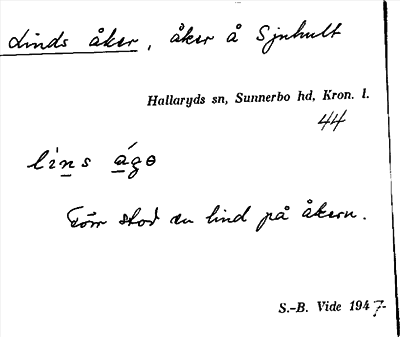 Linds åker, åker å Sjnhult
Hallaryds sn, Sunnerbo hd, Kron. l.
44
lins ágɵ
Förr stod en lind på åkern.
S.-B. Vide 1947